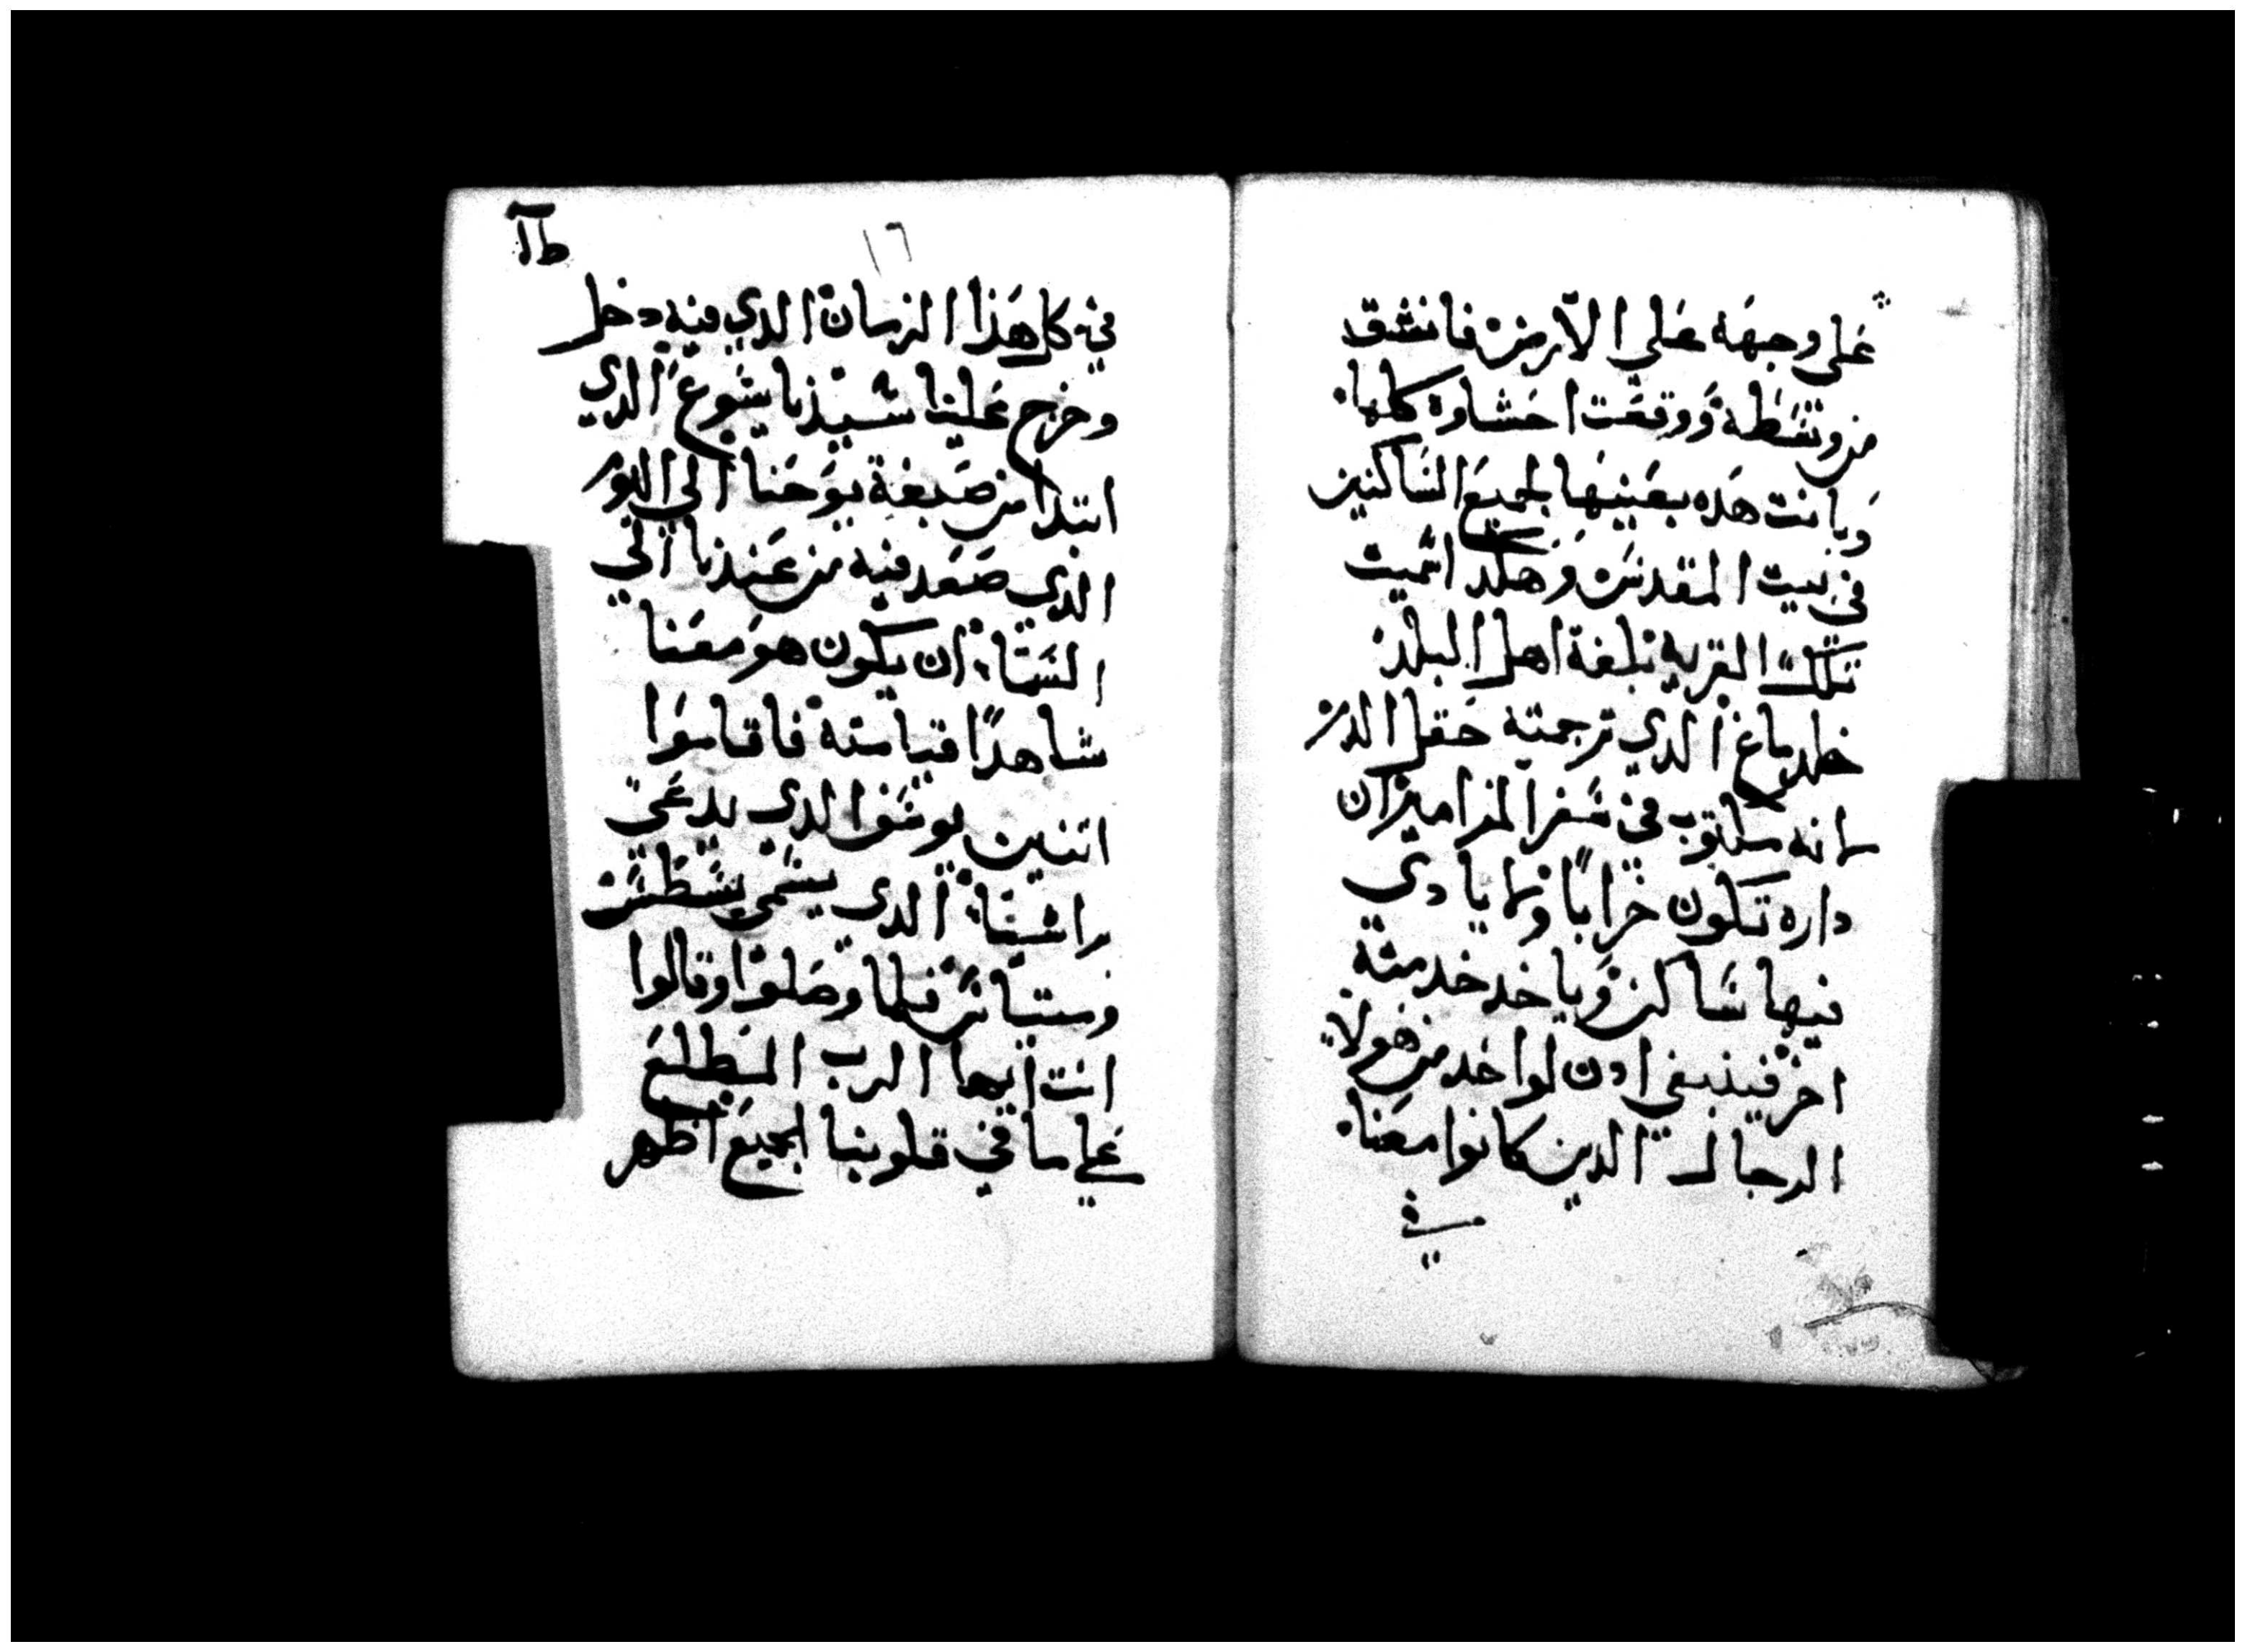 علي وجهه علي الارض فانشق
من وسطه ووقعت احشاوه كلها
وبانت هده بعينها لجميع الساكنين
في بيت المقدس وهكدا سميت
تلك القريه بلغة اهل البلد
خلدماغ الدي ترجمته حقل الدم
لانه مكتوب في سفر المزامير ان
داره تكون خرابا ولا يا دي
فيها ساكن وياخد خدمته
اخر فينبغي ادن لواحد من هولاي
الرجال الدين كانوا معنا
في
١٦
في كل هذا الزمان الدي فيه دخل
وخرج علينا سيدنا يسوع الدي
ابتدا من صبغة يوحنا الي اليوم
الدي صعد فيه من عندنا الي
السماء ان يكون هو معنا
شاهدا قيامته فاقاموا
اتنين يوسف الدي يدعي
براسبا الدي يسمي يسطس
ومتياس فلما وصلوا وقالوا
انت ايها الرب المطلع
علي ما في قلوبنا الجميع اظهر